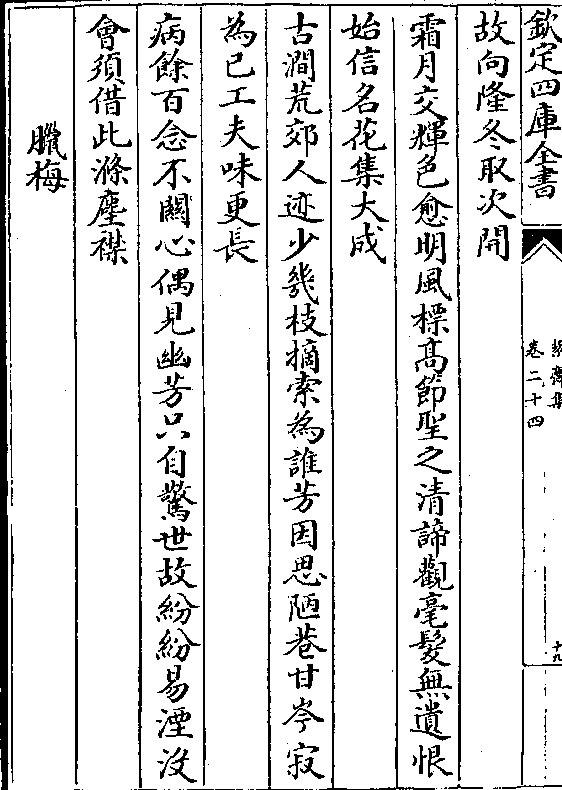 欽定四庫全書
絜齋集
卷二十四
十九
故向隆冬取次開
霜月交輝色愈明風標髙節聖之清諦觀毫髮無遺恨
始信名花集大成
古澗荒郊人迹少幾枝摘索為誰芳因思陋巷甘岑寂
為已工夫味更長
病餘百念不闗心偶見幽芳只自驚世故紛紛易湮沒
會須借此滌塵襟
臘梅